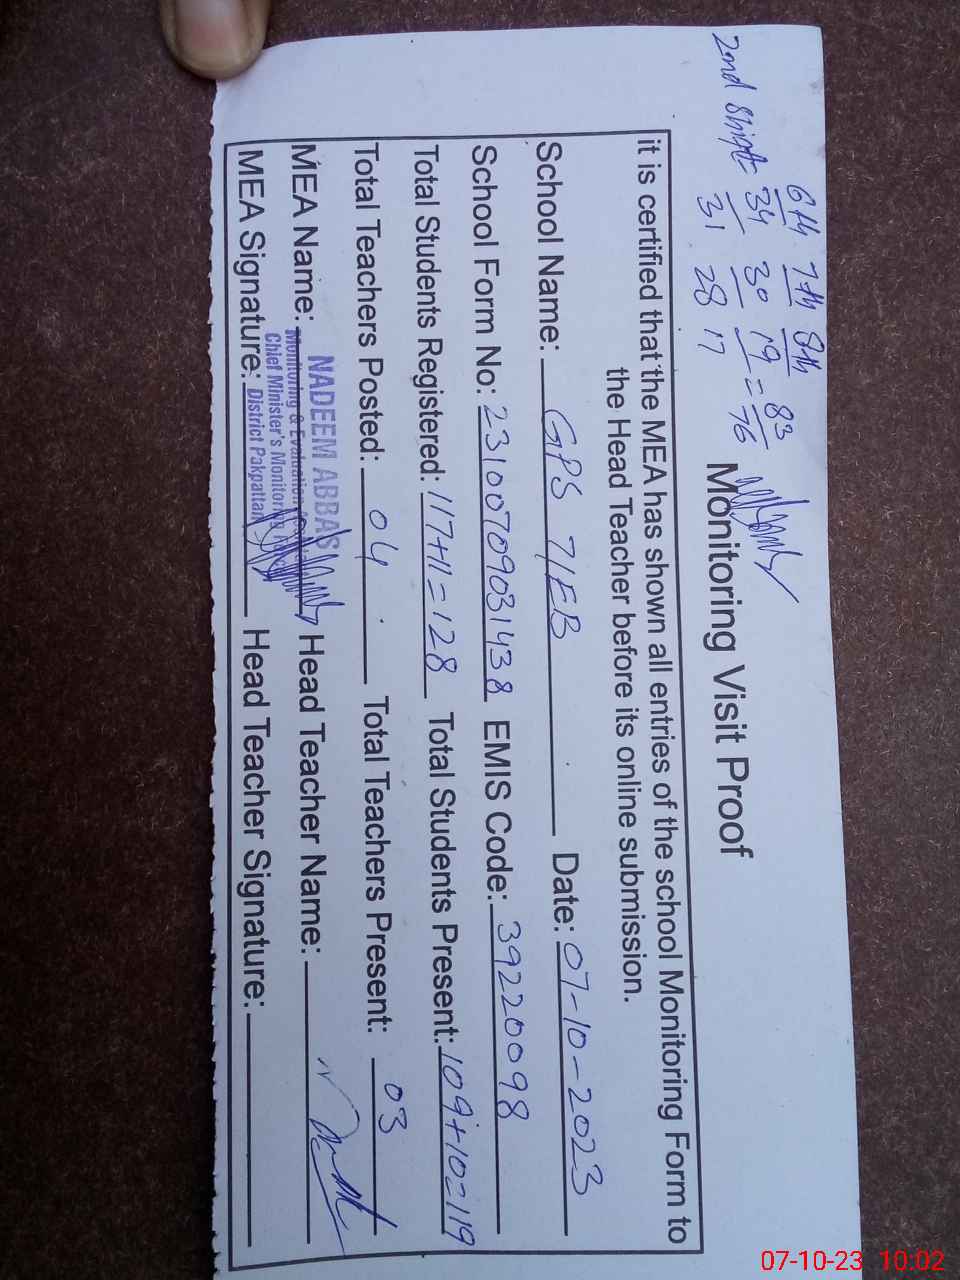 6th 7th 8th
2nd shift = 34 30 19 = 83
31 28 17 76
Monitoring Visit Proof
it is certified that the MEA has shown all entries of the school Monitoring Form to
the Head Teacher before its online submission.
School Name: GPS 7/EB Date: 07-10-2023
School Form No: 23100709031438 EMIS Code: 39220098
Total Students Registered: 117+11=128 Total Students Present: 109+10=119
Total Teachers Posted: 04 Total Teachers Present: 03
MEA Name: NADEEM ABBAS Head Teacher Name:
Monitoring & Evaluation
Chief Minister's Monitoring
MEA Signature: District Pakpattan Head Teacher Signature:
07-10-23 10:02